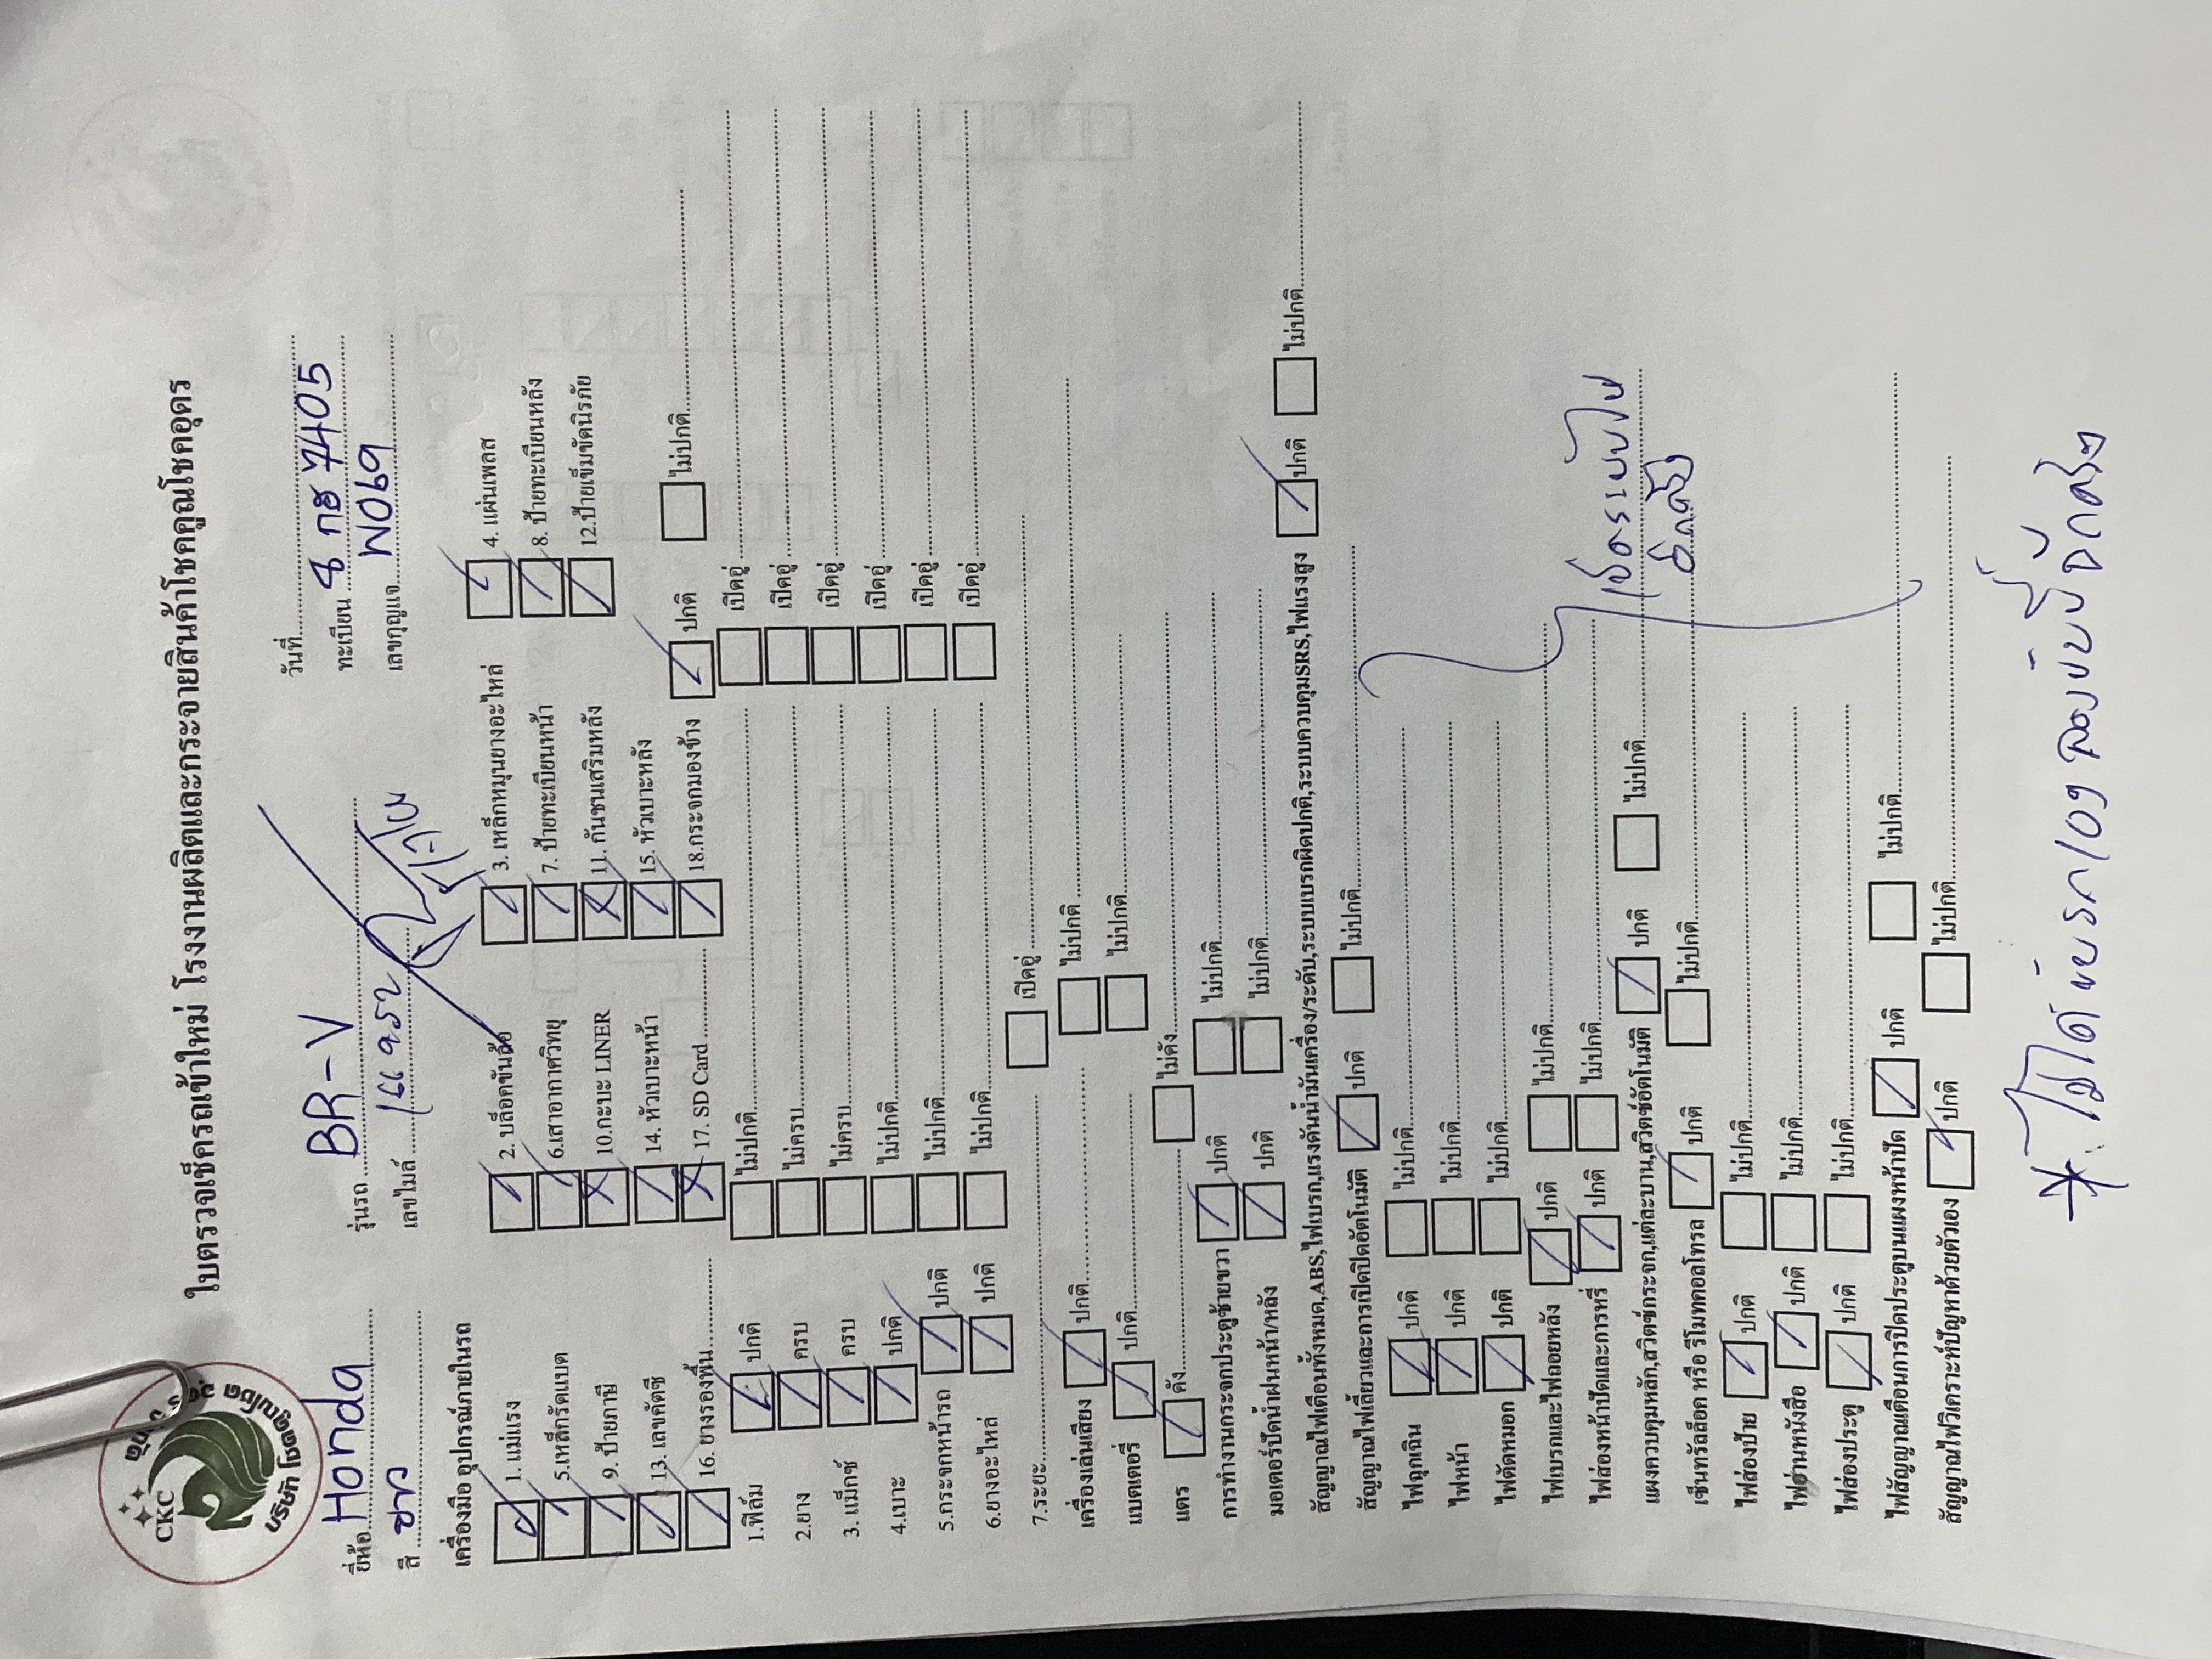 CKC
บริษัท โชคคูณโชค อุดร จำกัด
ใบตรวจเช็ครถเข้าใหม่ โรงงานผลิตและกระจายสินค้าโชคคูณโชคอุดร
วันที่
ยี่ห้อ Honda รุ่นรถ BR-V ทะเบียน 8 กธ 7405
สี ขาว เลขไมล์ เลขกุญแจ N069
เครื่องมือ อุปกรณ์ภายในรถ
1. แม่แรง 2. บล็อคขันล้อ 3. เหล็กหมุนยางอะไหล่ 4. แผ่นเพลส
5.เหล็กรัดแบต 6.เสาอากาศวิทยุ 7. ป้ายทะเบียนหน้า 8. ป้ายทะเบียนหลัง
9. ป้ายภาษี 10.กะบะ LINER 11. กันชนเสริมหลัง 12.ป้ายเข็มขัดนิรภัย
13. เลขคัดซี 14. หัวเบาะหน้า 15. หัวเบาะหลัง
16. ยางรองพื้น 17. SD Card 18.กระจกมองข้าง ปกติ ไม่ปกติ
1.ฟิล์ม ปกติ ไม่ปกติ เปิดอู่
2.ยาง ครบ ไม่ครบ เปิดอู่
3. แม็กซ์ ครบ ไม่ครบ เปิดอู่
4.เบาะ ปกติ ไม่ปกติ เปิดอู่
5.กระจกหน้ารถ ปกติ ไม่ปกติ เปิดอู่
6.ยางอะไหล่ ปกติ ไม่ปกติ เปิดอู่
7.ระยะ เปิดอู่
เครื่องเล่นเสียง ปกติ ไม่ปกติ
แบตเตอรี่ ปกติ ไม่ปกติ
แตร ดัง ไม่ดัง
การทำงานกระจกประตูซ้ายขวา ปกติ ไม่ปกติ
มอเตอร์ปัดน้ำฝนหน้า/หลัง ปกติ ไม่ปกติ
สัญญาณไฟเตือนทั้งหมด,ABS,ไฟเบรก,แรงดันน้ำมันเครื่อง/ระดับ,ระบบเบรกผิดปกติ,ระบบควบคุมSRS,ไฟแรงสูง ปกติ ไม่ปกติ
สัญญาณไฟเลี้ยวและการเปิดปิดอัตโนมัติ ปกติ ไม่ปกติ
ไฟฉุกเฉิน ปกติ ไม่ปกติ
ไฟหน้า ปกติ ไม่ปกติ
ไฟตัดหมอก ปกติ ไม่ปกติ
ไฟเบรกและไฟถอยหลัง ปกติ ไม่ปกติ
ไฟส่องหน้าปัดและการหรี่ ปกติ ไม่ปกติ
แผงควบคุมหลัก,สวิตซ์กระจก,แต่ละบาน,สวิตซ์อัตโนมัติ ปกติ ไม่ปกติ
เซ็นทรัลล็อค หรือ รีโมทคอลโทรล ปกติ ไม่ปกติ
ไฟส่องป้าย ปกติ ไม่ปกติ
ไฟอ่านหนังสือ ปกติ ไม่ปกติ
ไฟส่องประตู ปกติ ไม่ปกติ
ไฟสัญญาณเตือนการปิดประตูบนแผงหน้าปัด ปกติ ไม่ปกติ
สัญญาณไฟวิเคราะห์ปัญหาด้วยตัวเอง ปกติ ไม่ปกติ
เช็คระบบไฟ
อีกครั้ง
* ไม่ได้ขับรถเอง ลองขับขี่อีกครั้ง